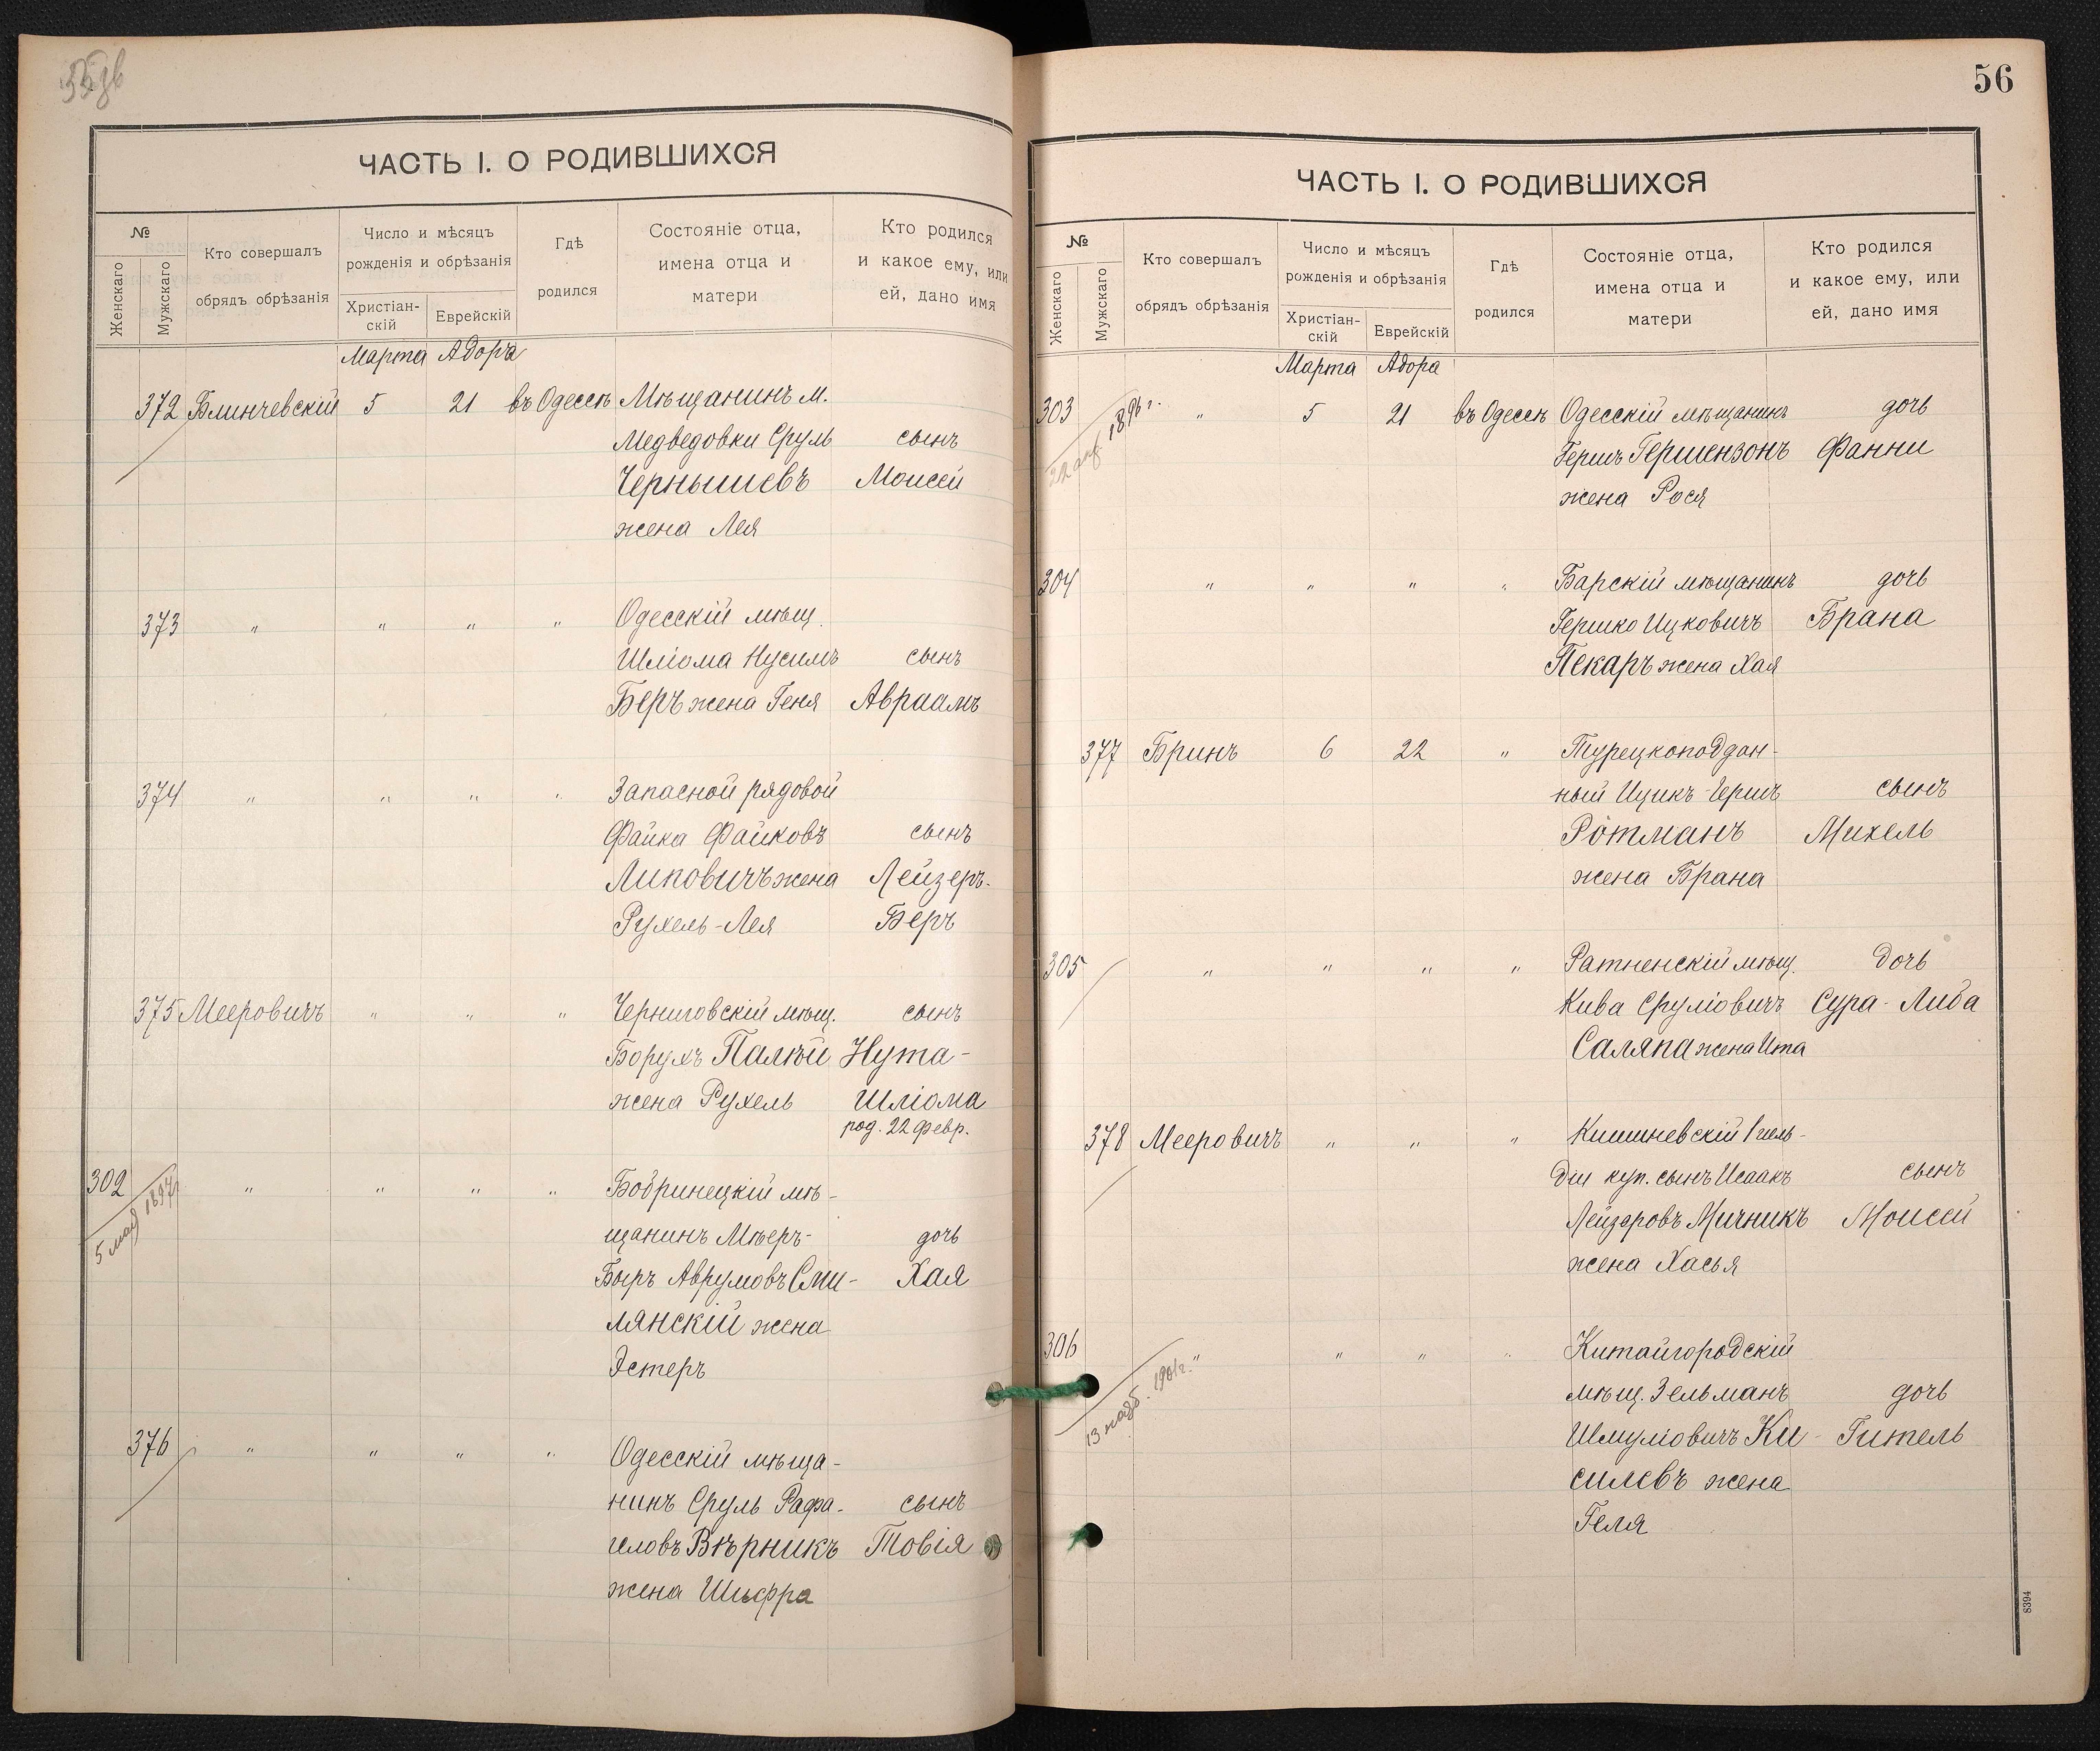 ЧАСТЬ I. О РОДИВШИХСЯ
№
Женскаго
Мужскаго
Кто совершалъ
обрядъ обрѣзанія
Число и мѣсяцъ
рожденія и обрѣзанія
Христіан-
скій
Еврейскій
Гдѣ
родился
Состояніе отца,
имена отца и
матери
Кто родился
и какое ему, или
ей, дано имя
Марта Адора
372 Блинчевскій 5 21 въ Одессѣ Мѣщанинъ м.
Медведовки Сруль сынъ
Чернышевъ Моисей
жена Лея
373 " " " " Одесскій мѣщ.
Шліома Нусимъ сынъ
Беръ жена Геня Авраамъ
374 " " " " Запасной рядовой
Файка Файковъ сынъ
Липовичъ жена Лейзеръ-
Рухель-Лея Беръ
375 Мееровичъ " " " Черниговскій мѣщ. сынъ
Борухъ Палѣй Нута-
жена Рухель Шліома
род. 22 февр.
302 " " " " Бобринецкій мѣ-
5 мая 1897 г.
щанинъ Мѣеръ- дочь
Беръ Аврумовъ Сми- Хая
лянскій жена
Эстеръ
376 " " " " Одесскій мѣща-
нинъ Сруль Рафа- сынъ
иловъ Вѣрникъ Товія
жена Шифра
56
ЧАСТЬ I. О РОДИВШИХСЯ
№
Женскаго
Мужскаго
Кто совершалъ
обрядъ обрѣзанія
Число и мѣсяцъ
рожденія и обрѣзанія
Христіан-
скій
Еврейскій
Гдѣ
родился
Состояніе отца,
имена отца и
матери
Кто родился
и какое ему, или
ей, дано имя
Марта Адора
303 " 5 21 въ Одессѣ Одесскій мѣщанинъ дочь
1896 г.
Гершъ Гершензонъ Фанни
жена Рося
304 " " " " Барскій мѣщанинъ дочь
Гершко Ицковичъ Брана
Пекаръ жена Хая
377 Бринъ 6 22 " Турецкоподдан-
ный Ицикъ-Гершъ сынъ
Ротманъ Михель
жена Брана
305 " " " " Ратненскій мѣщ. дочь
Кива Сруліовичъ Сура-Либа
Саляпа жена Ита
378 Мееровичъ " " " Кишиневскій 1 гиль-
діи куп. сынъ Исаакъ сынъ
Лейзеровъ Мичникъ Моисей
жена Хасья
306 " " " " Китайгородскій
13 нояб. 1901 г.
мѣщ. Зельманъ дочь
Шмуліовичъ Ки- Гитель
силевъ жена
Геля
8394